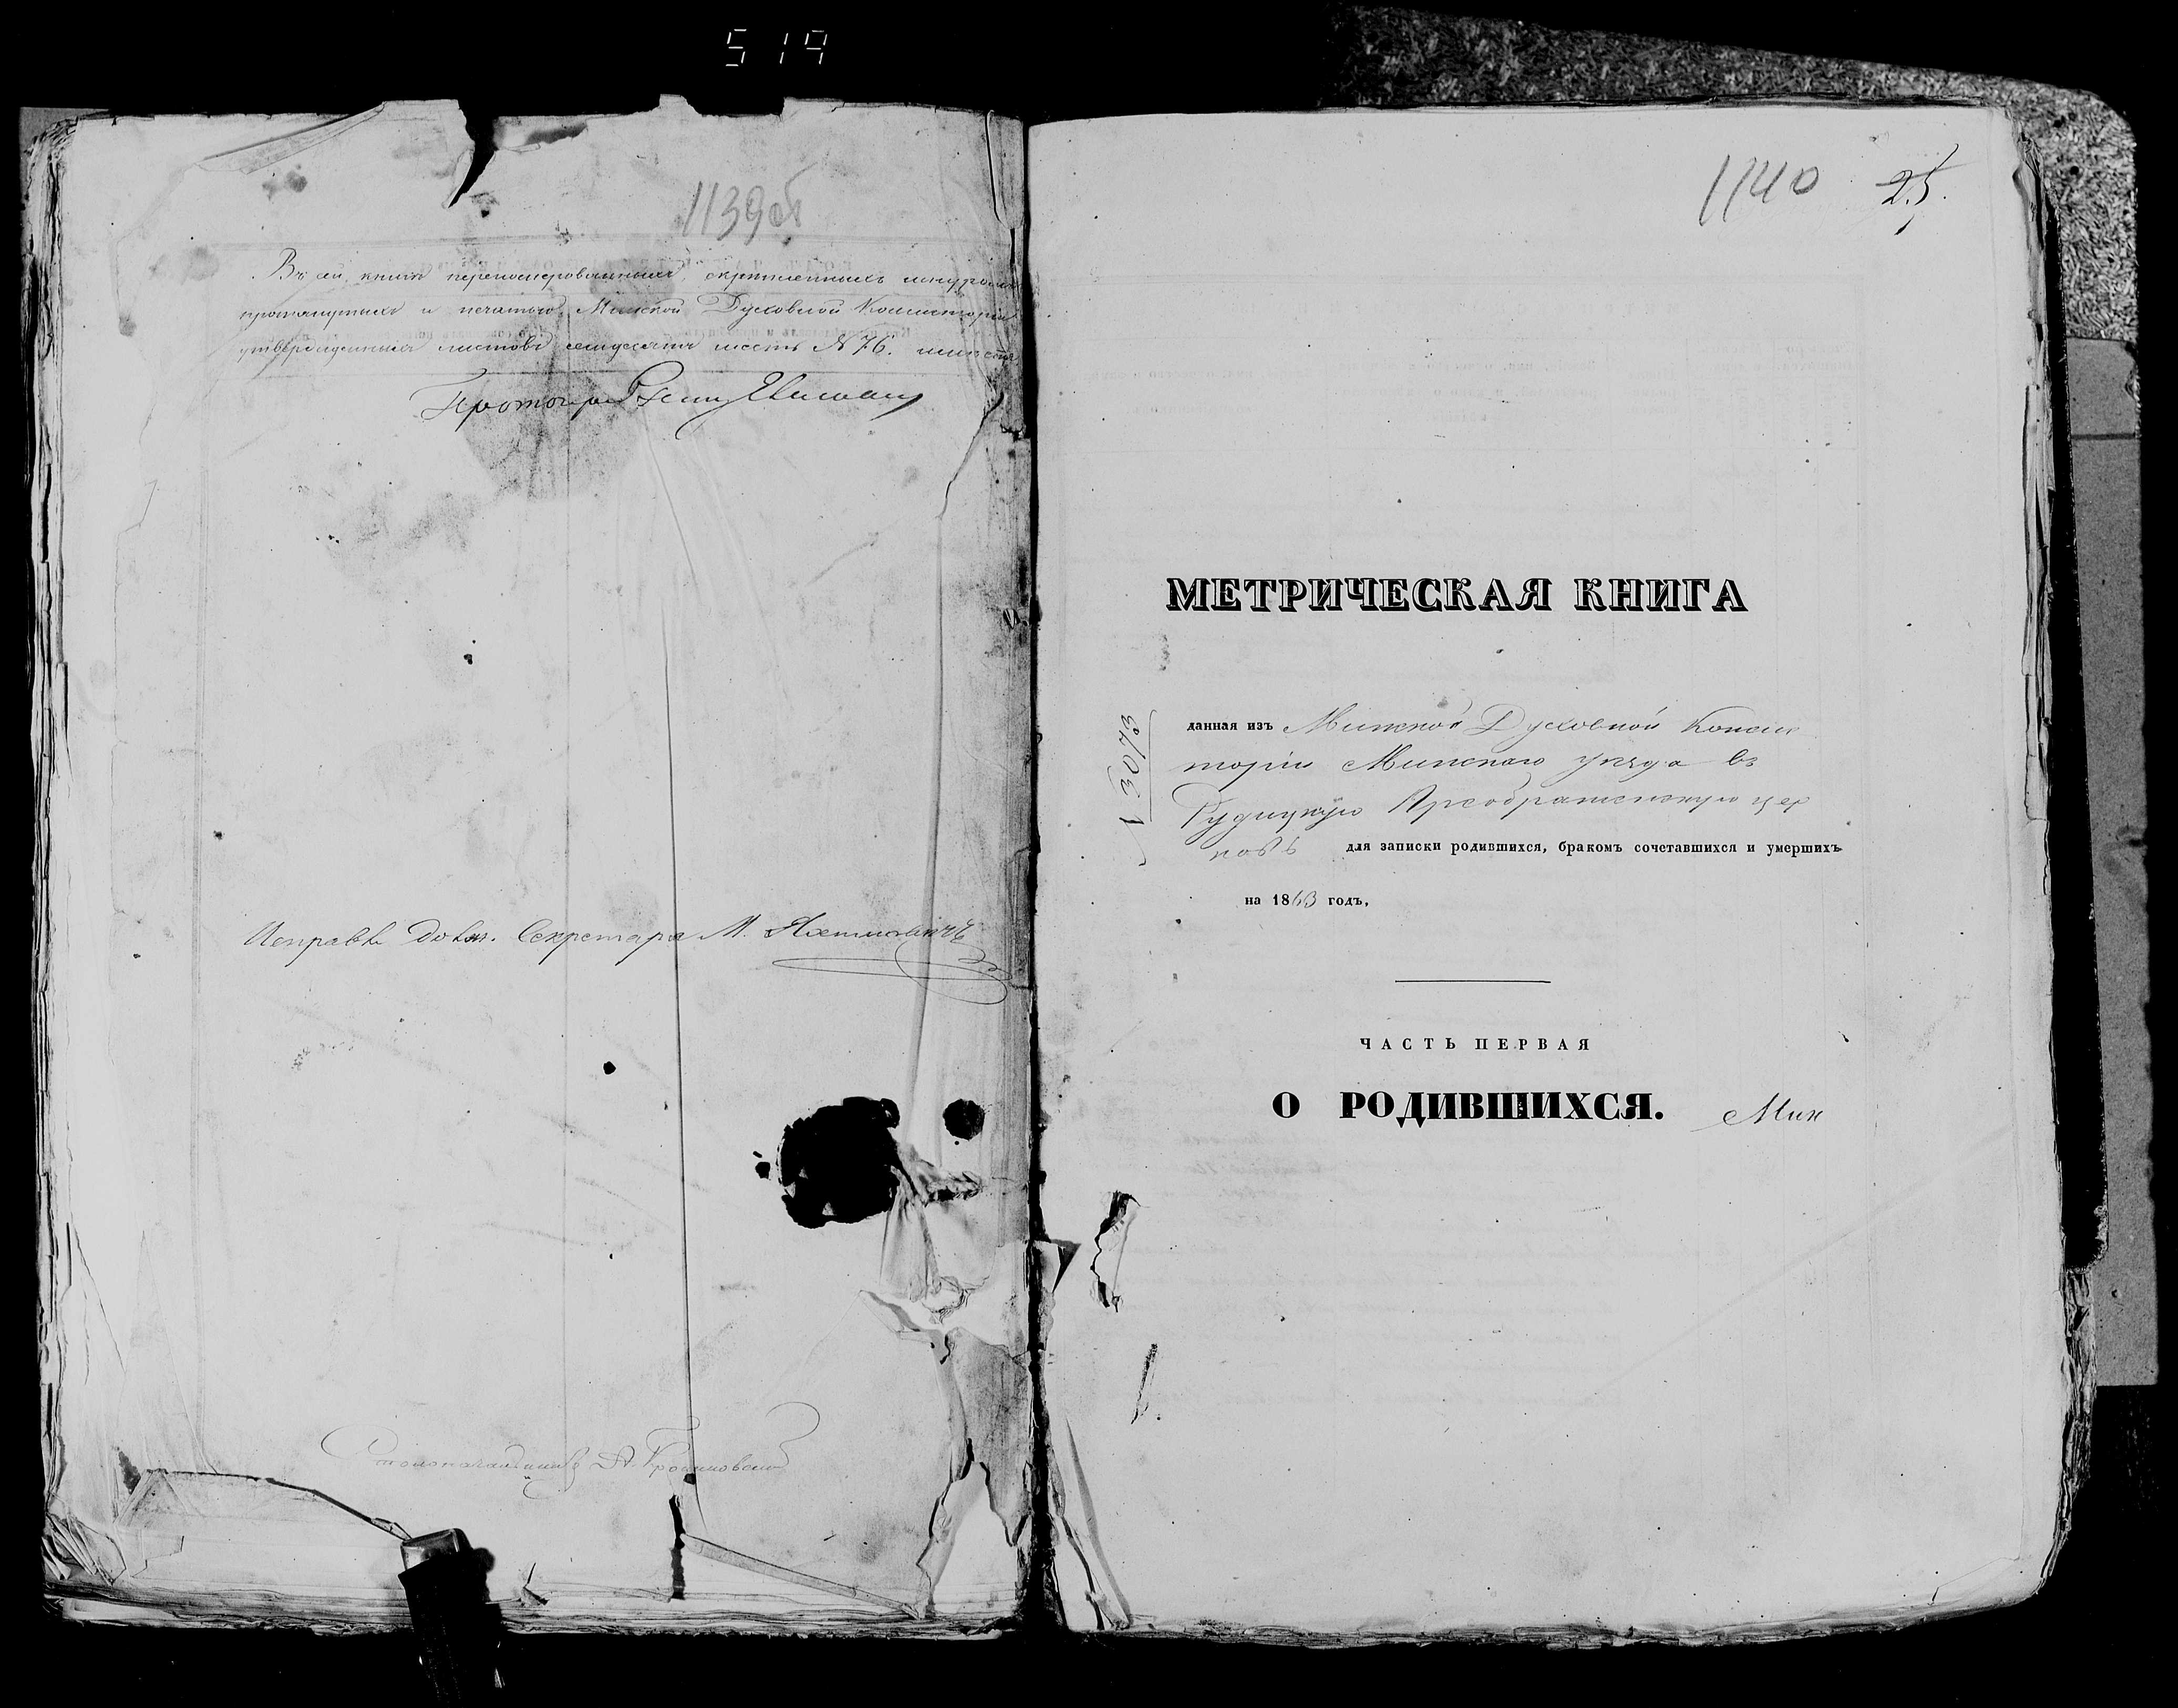 519
1139об
Въ сей книгѣ перенумерованныхъ скрѣпленныхъ шнуромъ
протянутыхъ и печатью Минской Духовной Консисторіи
утвержденныхъ листовъ семьдесятъ шесть № 76.
Протоіерей
Исправл. долж. Секретаря М.
Столоначальникъ
1140 25.
МЕТРИЧЕСКАЯ КНИГА
№ 3073
данная изъ Минской Духовной Консис
торіи Минскаго уѣзда въ
Рудицкую Преображенскую цер
ковь для записки родившихся, бракомъ сочетавшихся и умершихъ
на 1863 годъ,
ЧАСТЬ ПЕРВАЯ
О РОДИВШИХСЯ. Мин